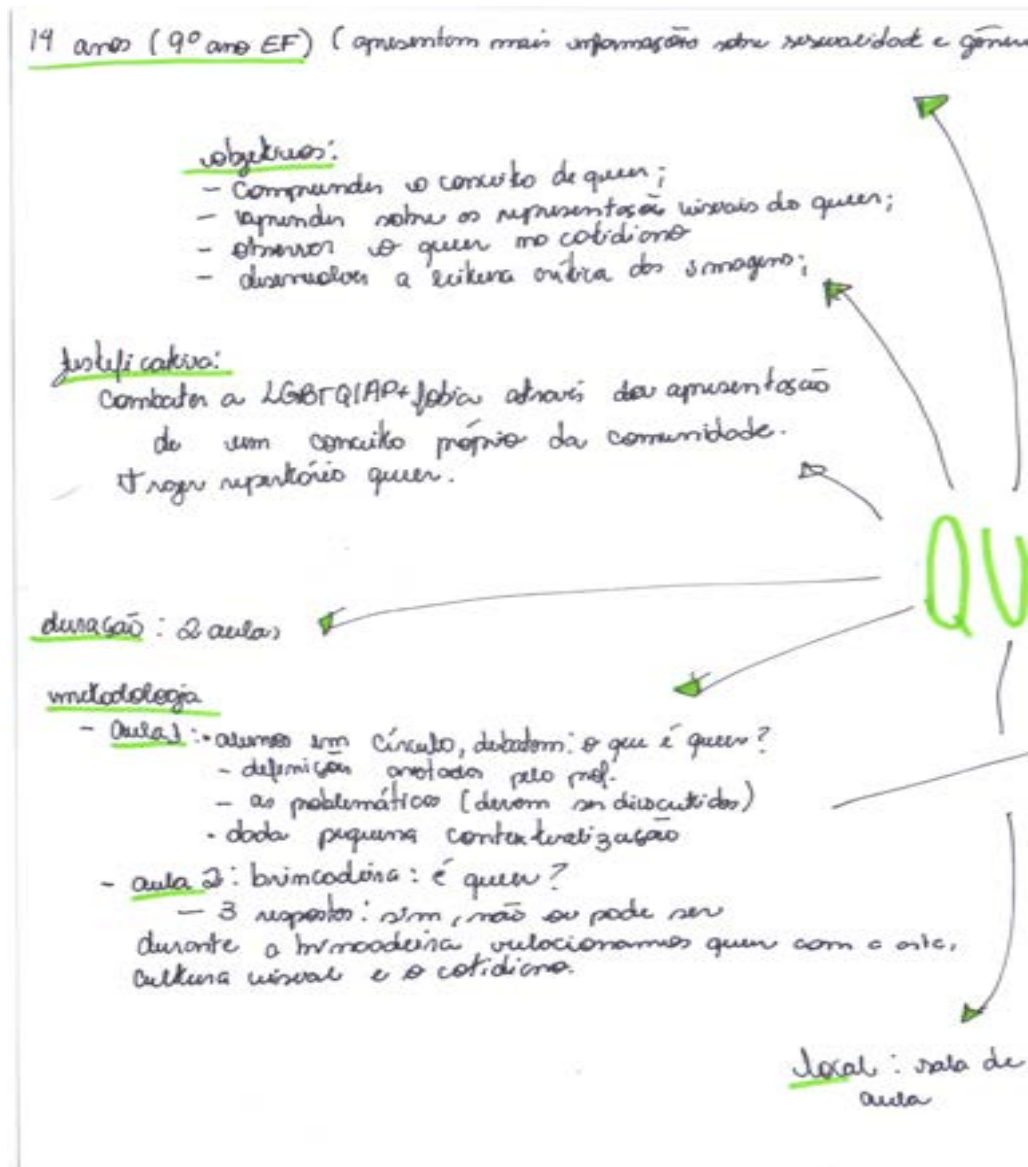 14 anos (9º ano EF) (apresentam mais informação sobre sexualidade e gêner
objetivos:
- Compreender o conceito de queer;
- aprender sobre as representações visuais do queer;
- observar o queer no cotidiano
- desenvolver a leitura crítica das imagens;
justificativa:
Combater a LGBTQIAP+fobia através da apresentação
de um conceito próprio da comunidade.
Trazer repertório queer.
QU
duração: 2 aulas
metodologia
- aula 1: • alunos em círculo, debatem: o que é queer?
- definições anotadas pelo prof.
- as problemáticas (devem ser discutidas)
• dada pequena contextualização
- aula 2: brincadeira: é queer?
- 3 respostas: sim, não ou pode ser
durante a brincadeira relacionamos queer com a arte,
cultura visual e o cotidiano.
local: sala de
aula